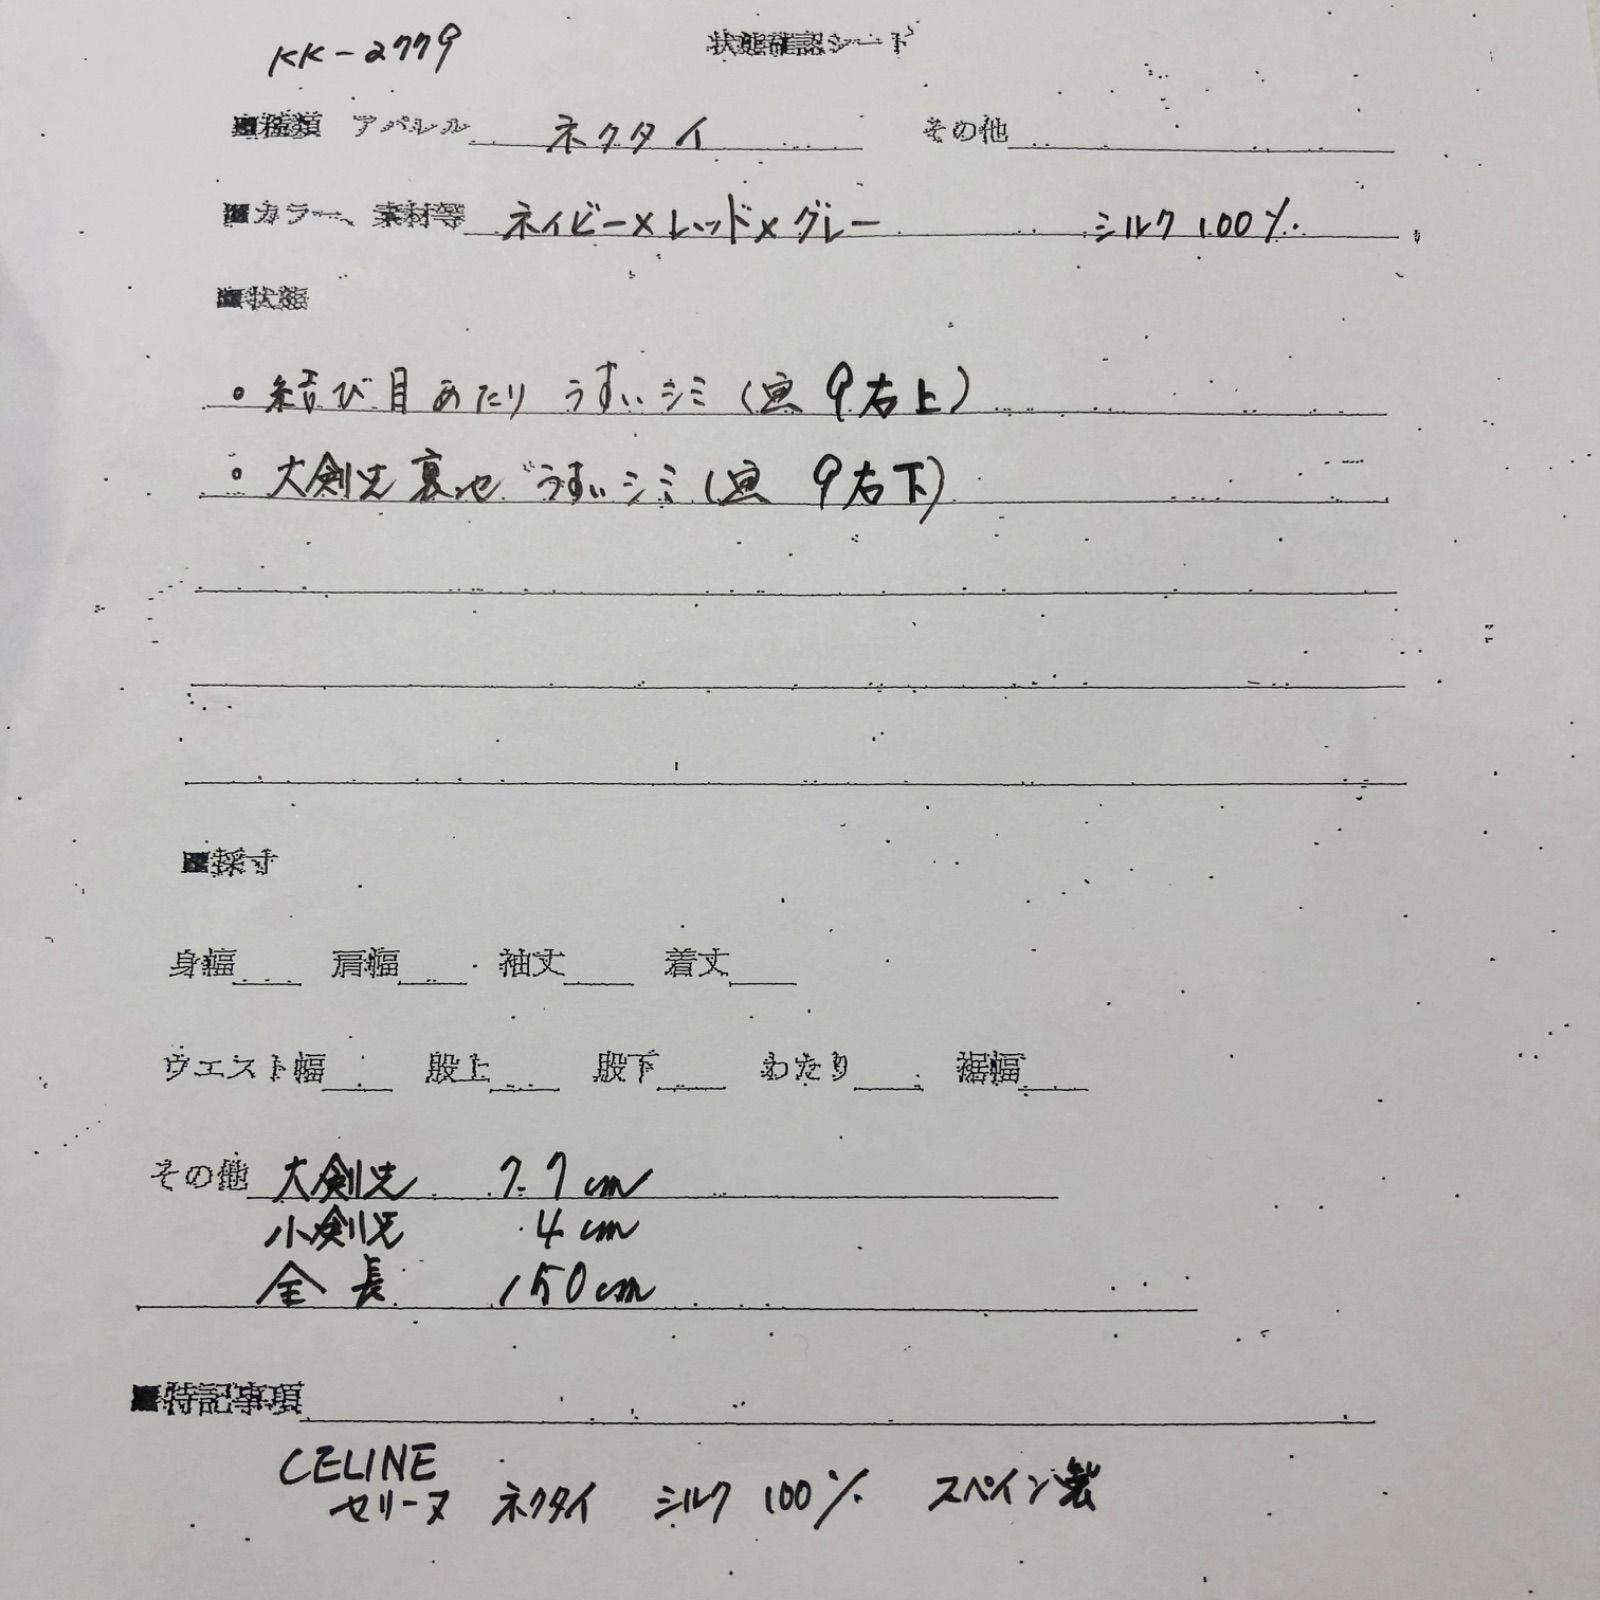 KK-2779
状態確認シート
■種類 アパレル ネクタイ その他
■カラー、素材等 ネイビー×レッド×グレー シルク100%
■状態
・結び目あたり うすいシミ(画 9右上)
・大剣先裏地 うすいシミ(画 9右下)
■採寸
身幅 肩幅 袖丈 着丈
ウエスト幅 股上 股下 わたり 裾幅
その他 大剣先 7.7cm
小剣先 4cm
全長 150cm
■特記事項
CELINE
セリーヌ ネクタイ シルク100% スペイン製